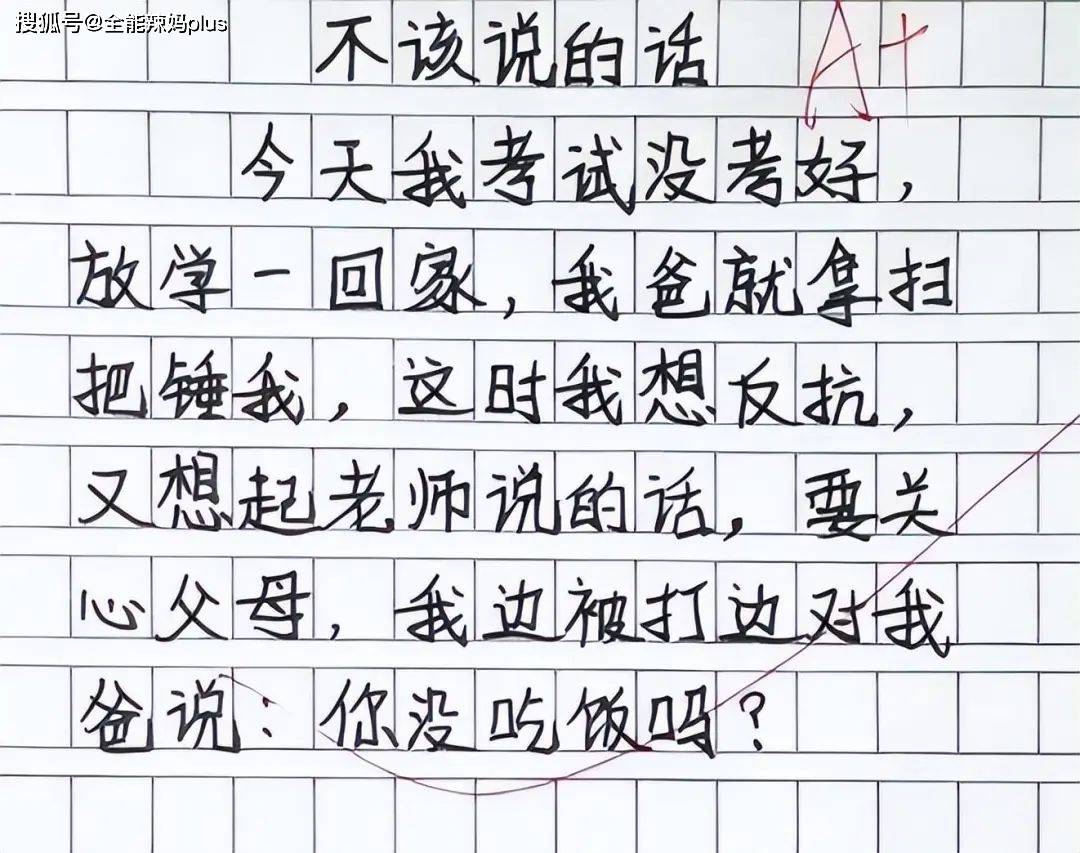 搜狐号@全能辣妈plus
不该说的话 A+
今天我考试没考好，
放学一回家，我爸就拿扫
把锤我，这时我想反抗，
又想起老师说的话，要关
心父母，我边被打边对我
爸说：你没吃饭吗？